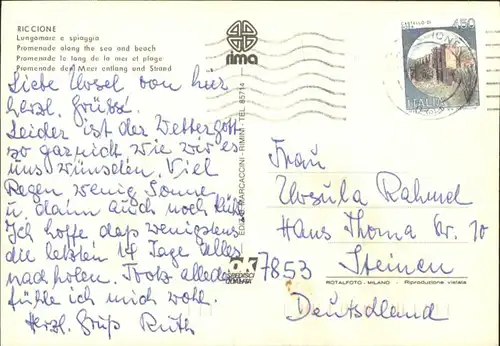 RICCIONE
Lungomare e spiaggia
Promenade along the sea and beach
Promenade le long de la mer et plage
Promenade der Meer entlang und Strand
rima
CASTELLO DI
450
ITALIA
EDIZ. MARCACCINI - RIMINI - TEL. 85714
Liebe Ursel von hier
herzl. Grüße!
Leider ist der Wettergott
so garnicht wie wir es
uns wünschen. Viel
Regen wenig Sonne
u. dann auch noch kühl
Ich hoffe daß wenigstens
die letzten 14 Tage alles
nachholen. Trotz alledem
fühle ich mich wohl.
Herzl. Gruß Ruth
Frau
Ursula Rahmel
Hans Thoma Str. 10
7853 Steinen
ROTALFOTO - MILANO - Riproduzione vietata
Deutschland